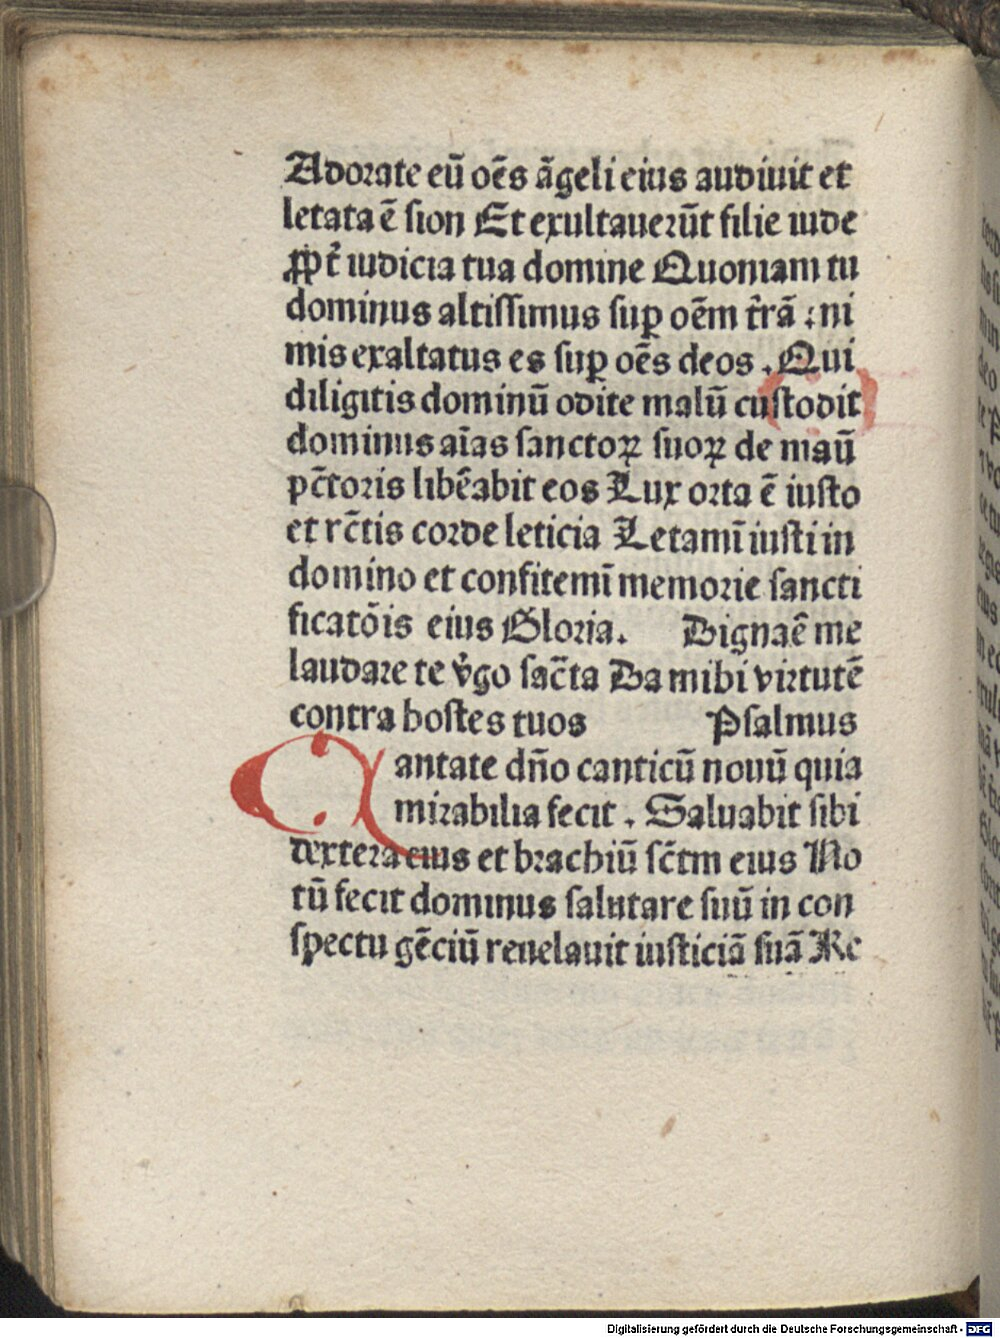 Adorate eū oēs āgeli eius audiuit et
letata ē sion Et exultauerūt filie iude
ꝓpt̄ iudicia tua domine Quoniam tu
dominus altissimus suꝑ oēm t̄rā : ni
mis exaltatus es suꝑ oēs deos . Qui
diligitis dominū odite malū custodit
dominus aīas sanctoꝝ suoꝝ de maū
pc̄toris libēabit eos Lux orta ē iusto
et rc̄tis corde leticia Letamī iusti in
domino et confitemī memorie sancti
ficatōis eius Gloria. Digna ē me
laudare te v̄go sac̄ta Da mihi virtutē
contra hostes tuos Psalmus
Cantate dn̄o canticū nouū quia
mirabilia fecit . Saluabit sibi
dextera eius et brachiū sc̄tm eius No
tū fecit dominus salutare suū in con
spectu gēciū reuelauit iusticiā suā Re
Digitalisierung gefördert durch die Deutsche Forschungsgemeinschaft - DFG